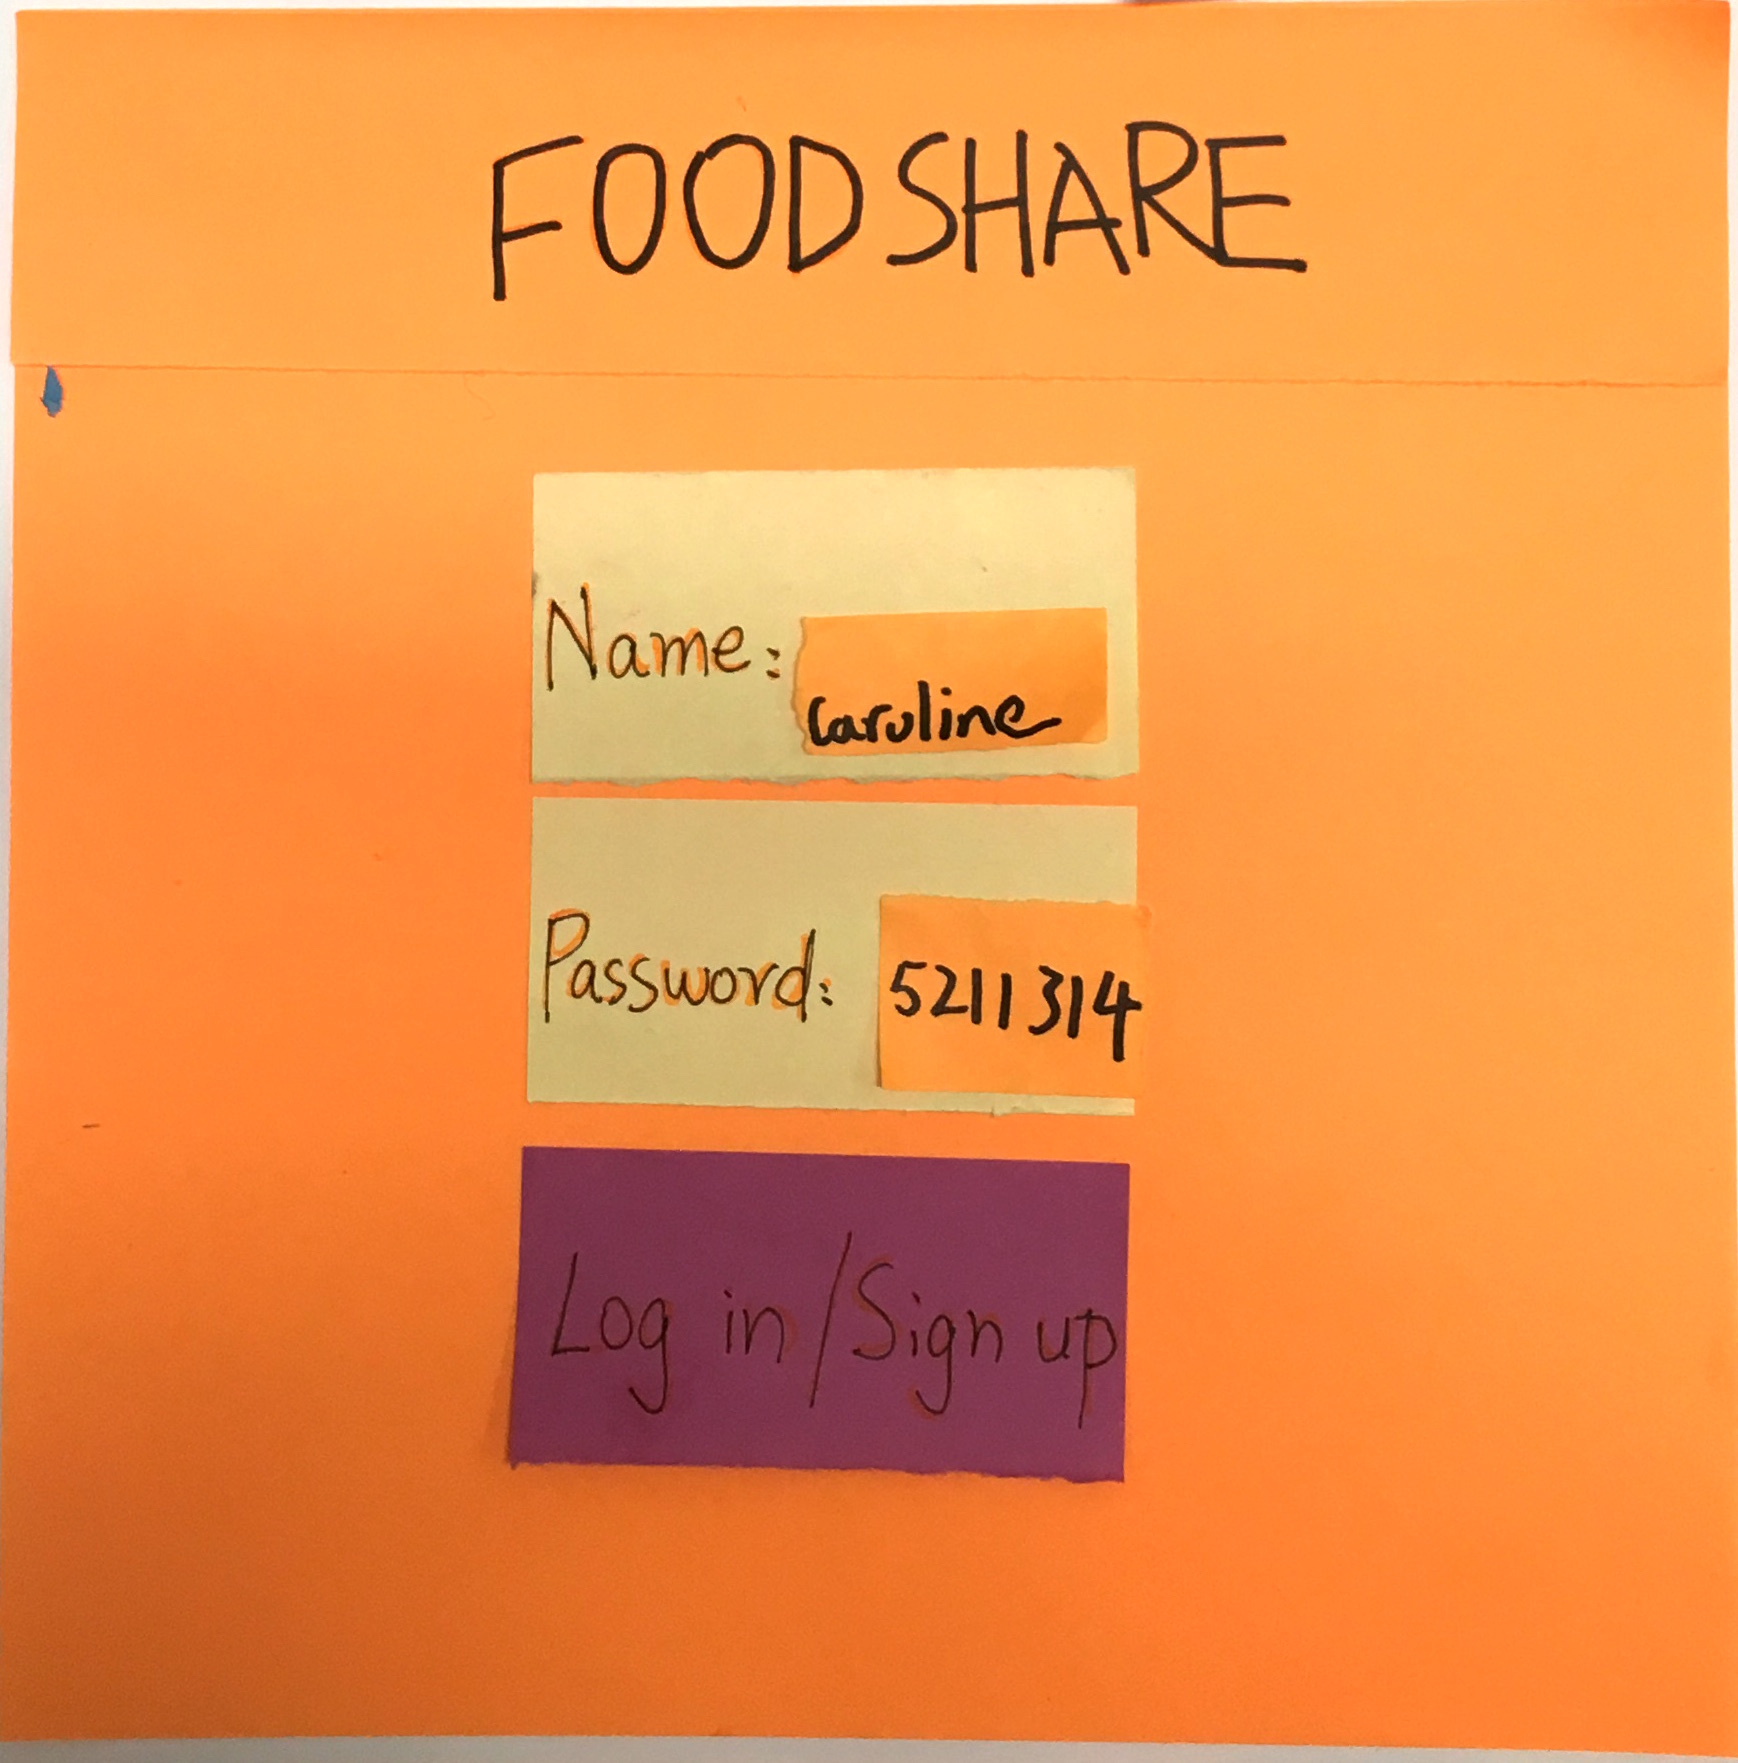 FOODSHARE
Name: caroline
Password: 5211314
Log in/Sign up